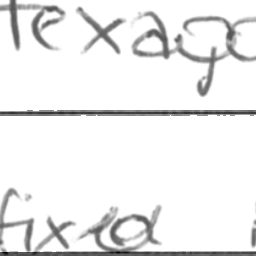 texago
fixed